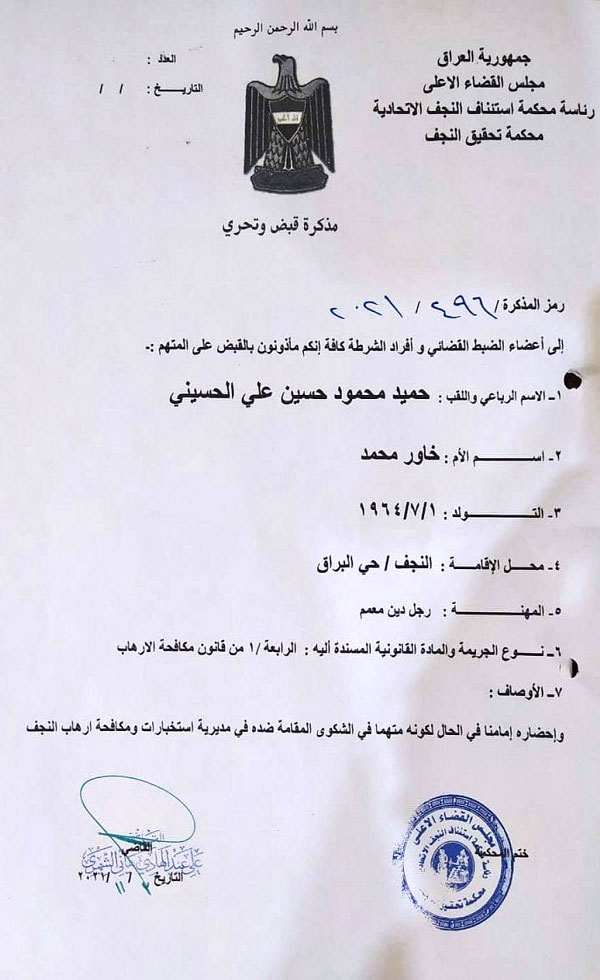 بسم الله الرحمن الرحيم
جمهورية العراق
مجلس القضاء الاعلى
رئاسة محكمة استئناف النجف الاتحادية
محكمة تحقيق النجف
العدد :
التاريـــخ : / /
مذكرة قبض وتحري
رمز المذكرة / ٤٩٦ / ٢٠٢١
إلى أعضاء الضبط القضائي و أفراد الشرطة كافة إنكم مأذونون بالقبض على المتهم :-
١- الاسم الرباعي واللقب : حميد محمود حسين علي الحسيني
٢- اســـم الأم : خاور محمد
٣- التـــولد : ١٩٦٤/٧/١
٤- محـل الإقامـة : النجف / حي البراق
٥- المهنـــة : رجل دين معمم
٦- نـوع الجريمة والمادة القانونية المسندة أليه : الرابعة /١ من قانون مكافحة الارهاب
٧- الأوصاف :
وإحضاره إمامنا في الحال لكونه متهما في الشكوى المقامة ضده في مديرية استخبارات ومكافحة ارهاب النجف
ختم المحكمة
مجلس القضاء الاعلى
رئاسة محكمة استئناف النجف الاتحادية
القاضي
التاريخ ٢ / ١١ / ٢٠٢١